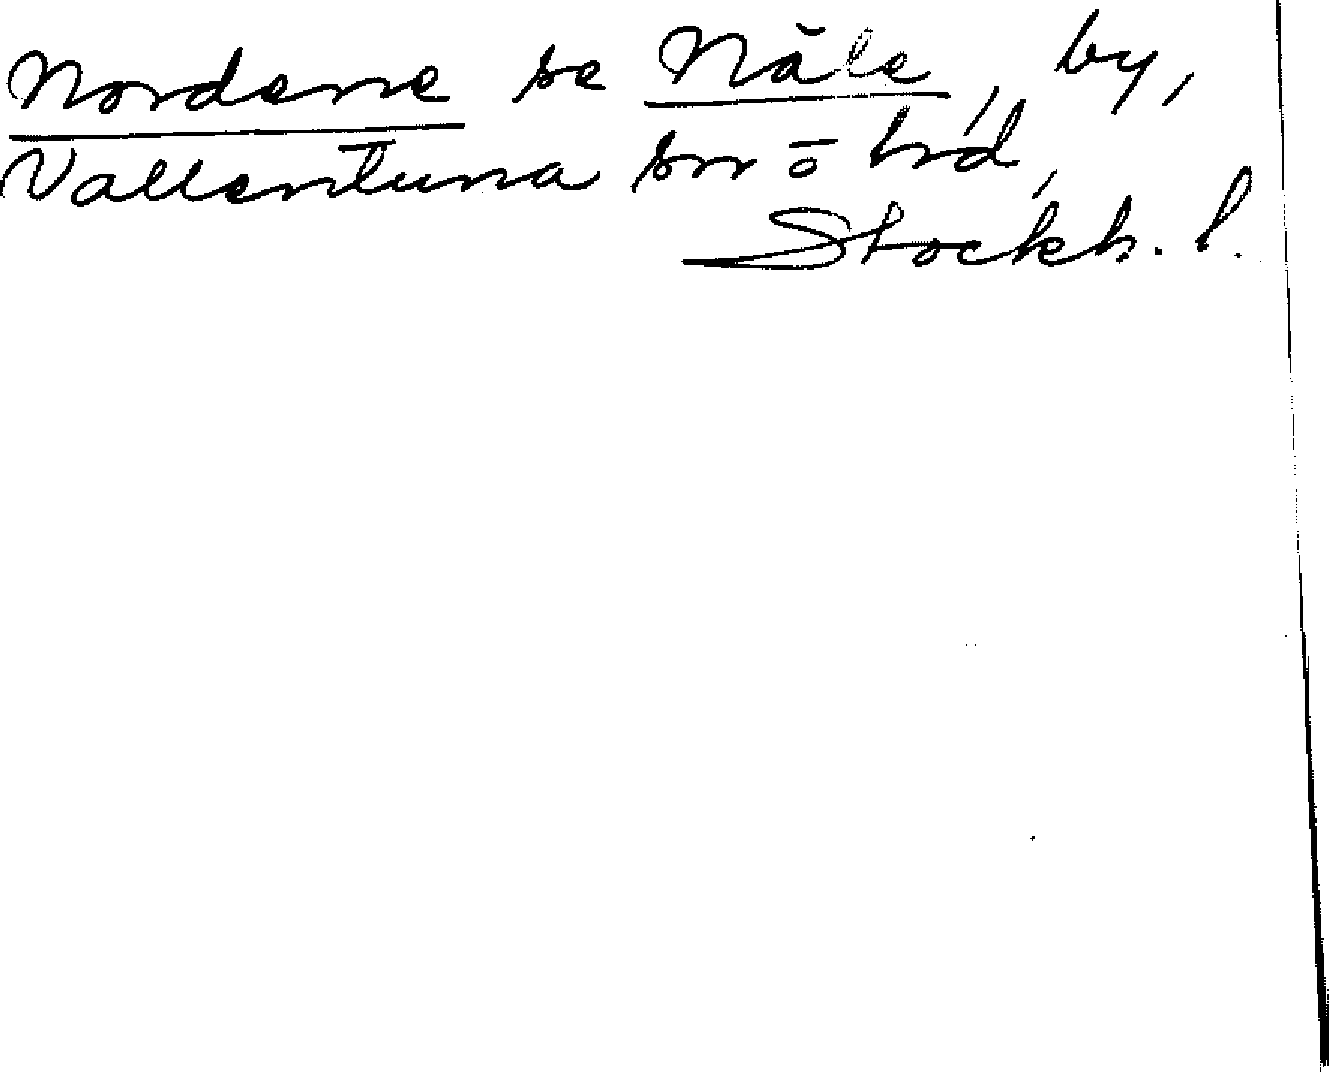 Nordene se Nåle, by,
Vallentuna sn o hd,
Stockh. l.